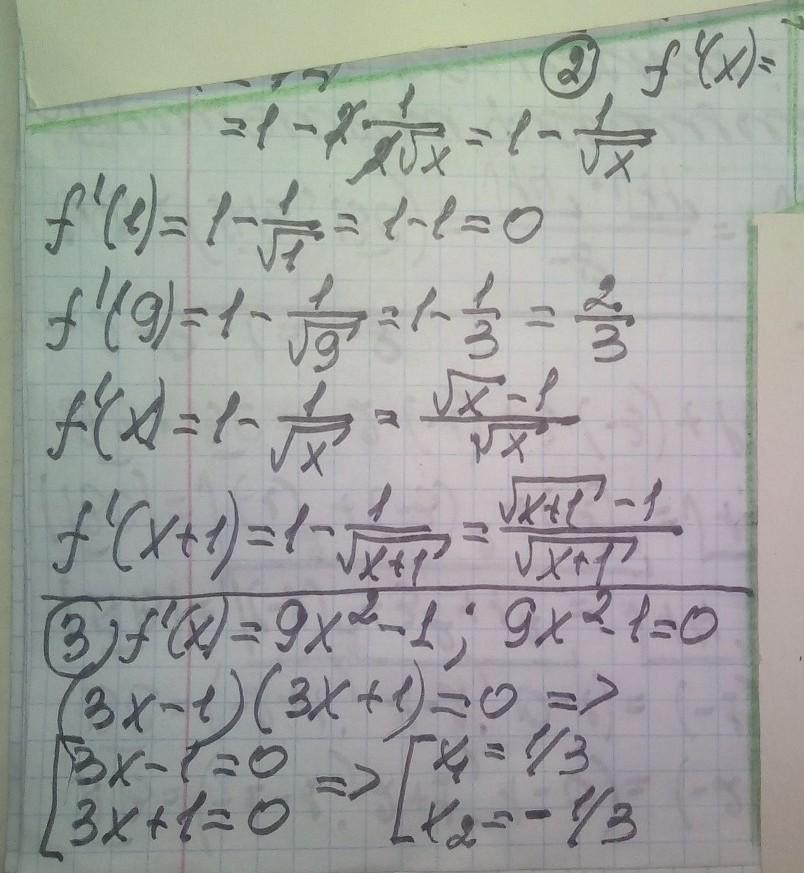 ② f'(x)=
=1-2·1/(2√x)=1-1/√x
f'(1)=1-1/√1=1-1=0
f'(9)=1-1/√9=1-1/3=2/3
f'(x)=1-1/√x=(√x-1)/√x
f'(x+1)=1-1/√(x+1)=(√(x+1)-1)/√(x+1)
③ f'(x)=9x²-1; 9x²-1=0
(3x-1)(3x+1)=0 =>
[3x-1=0 => [x₁=1/3
3x+1=0 x₂=-1/3